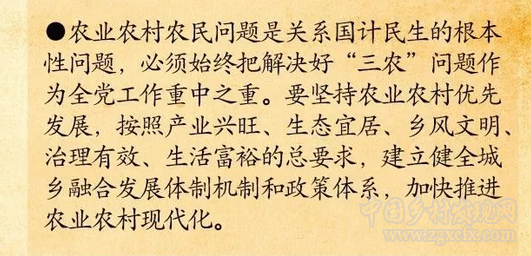 ●农业农村农民问题是关系国计民生的根本
性问题，必须始终把解决好“三农”问题作
为全党工作重中之重。要坚持农业农村优先
发展，按照产业兴旺、生态宜居、乡风文明、
治理有效、生活富裕的总要求，建立健全城
乡融合发展体制机制和政策体系，加快推进
农业农村现代化。
中国乡村发现网
www.zgxcfx.com